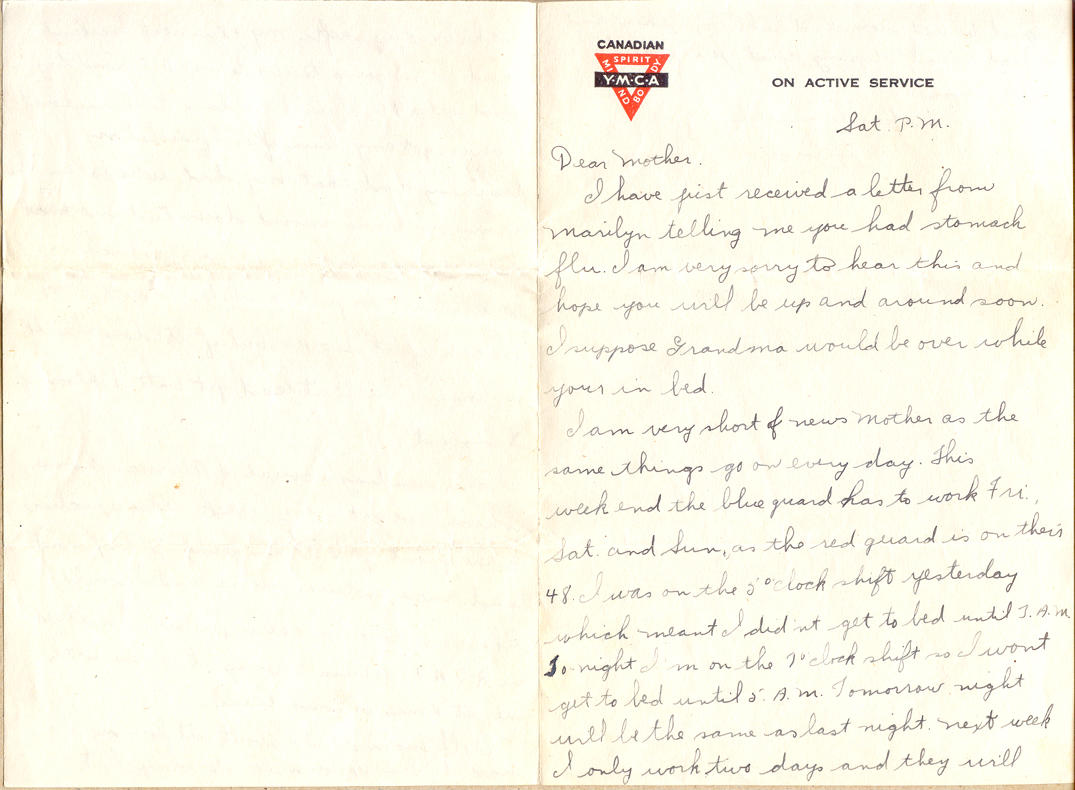 CANADIAN
SPIRIT
MIND BODY
Y·M·C·A
ON ACTIVE SERVICE
Sat. P.M.
Dear Mother.
I have just received a letter from
Marilyn telling me you had stomach
flu. I am very sorry to hear this and
hope you will be up and around soon.
I suppose Grandma would be over while
your in bed.
I am very short of news Mother as the
same things go on every day. This
week end the blue guard has to work Fri.,
Sat. and Sun., as the red guard is on their
48. I was on the 5 o'clock shift yesterday
which meant I didn't get to bed until 3. A.M.
To night I'm on the 7 o'clock shift so I wont
get to bed until 5. A.M. Tomorrow night
will be the same as last night. Next week
I only work two days and they will